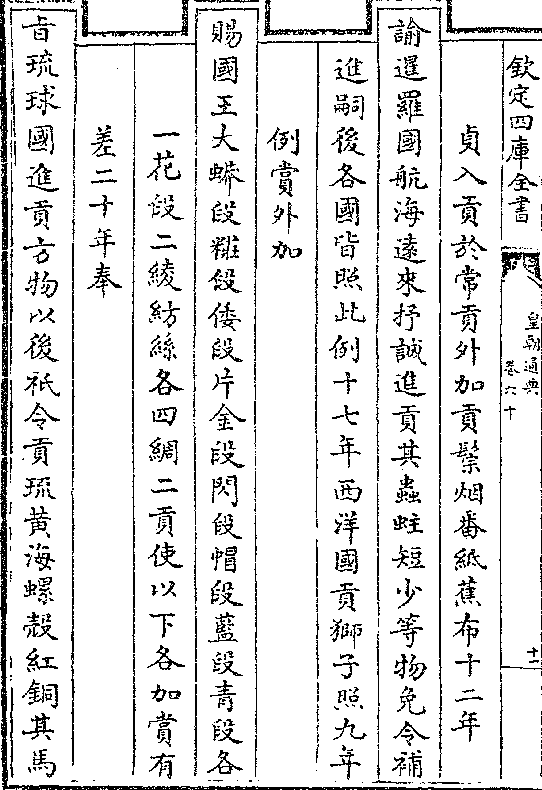 欽定四庫全書
皇朝通典
卷六十
十一
貞入貢於常貢外加貢鬃烟番紙蕉布十二年
諭暹羅國航海遠來抒誠進貢其蟲蛀短少等物免令補
進嗣後各國皆照此例十七年西洋國貢獅子照九年
例賞外加
賜國王大蟒段粧段倭段片金段閃段帽段藍段青段各
一花段二綾紡絲各四綢二貢使以下各加賞有
差二十年奉
旨琉球國進貢方物以後祇令貢琉黄海螺殼紅銅其馬